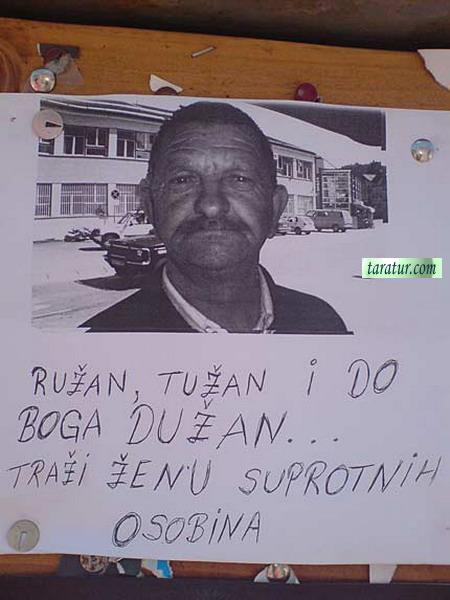 taratur.com
RUŽAN, TUŽAN I DO
BOGA DUŽAN...
TRAŽI ŽENU SUPROTNIH
OSOBINA